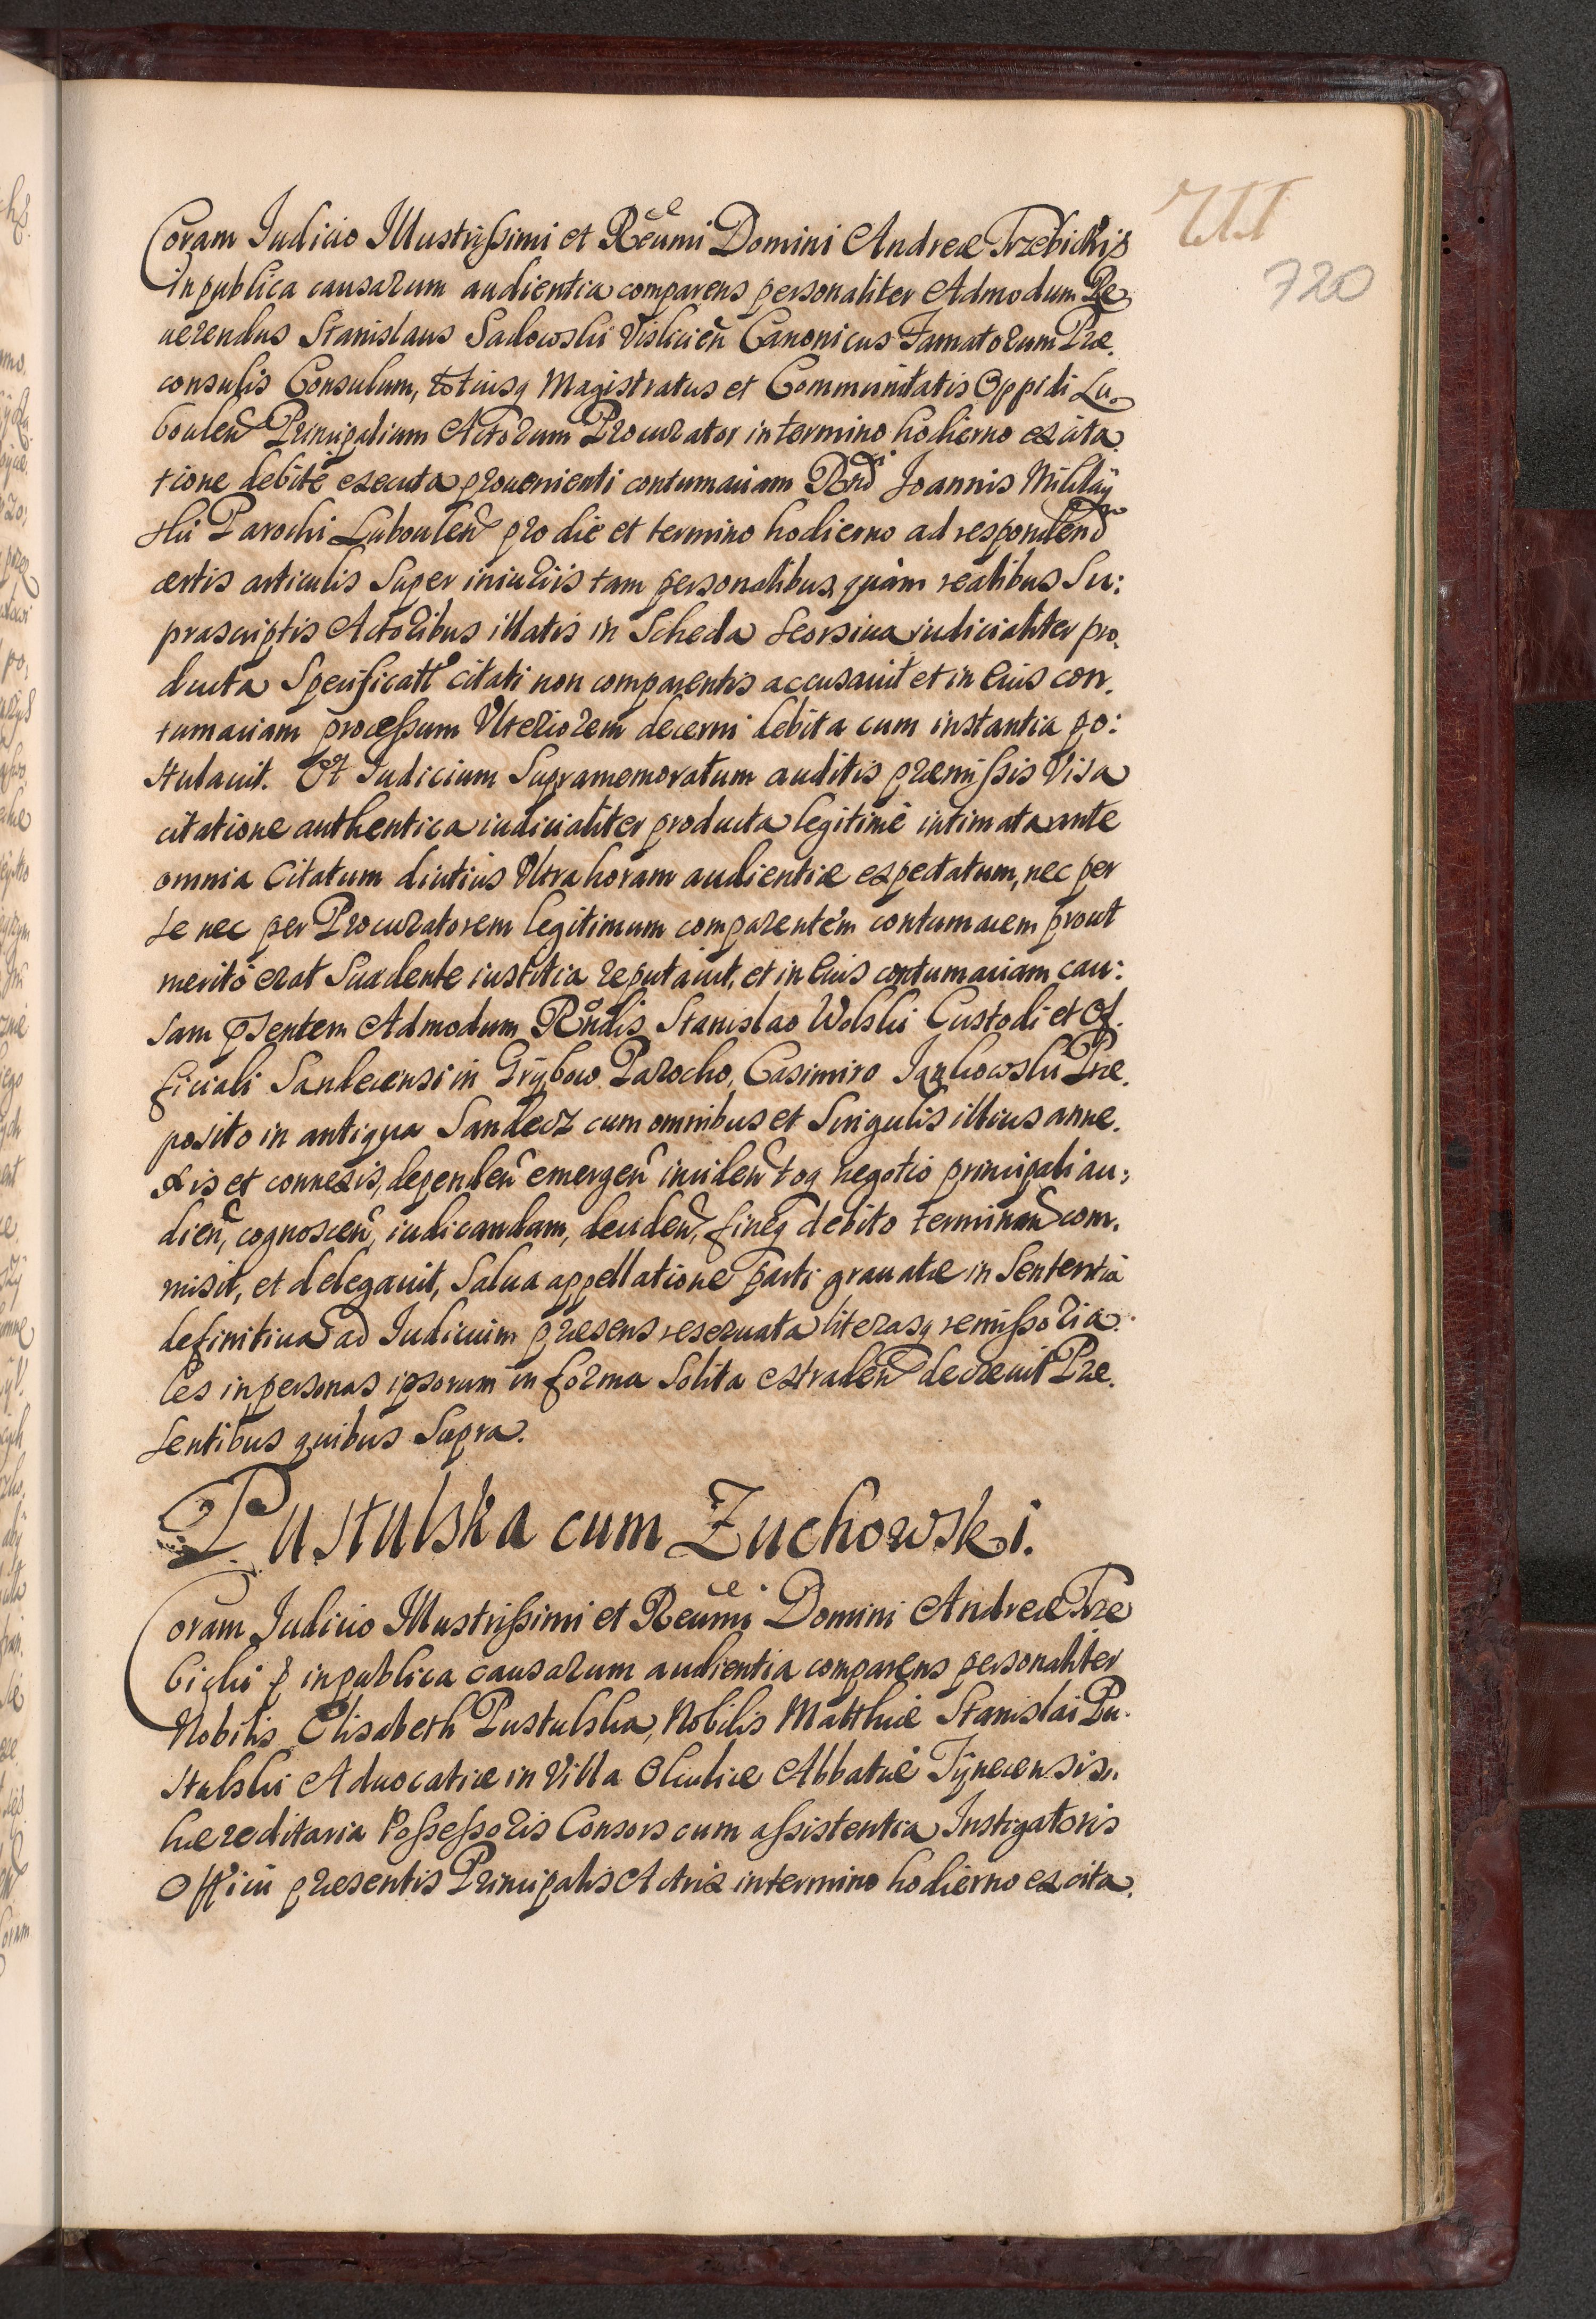 711
720
Coram Iudicio Illustrissimi et Reu̅mi Domini Andreæ Trzebickijs
in publica causarum audientia comparens personaliter Admodum Re
uerendus Stanislaus Sadowski Visliciēn Canonicus Famatorum Præ.
consulis Consulum, totiusq Magistratus et Communitatis Oppidi Lu.
boulen Principalium Actorum Procurator in termino hodierno ex cita
tione debitè executa prouenienti contumaciam Rnd Joannis
ski Parochi Luboulen pro die et termino hodierno ad respondend
certis articulis Super iniuriis tam personalibus quàm realibus Su:
prascriptis Actoribus illatis in Scheda seorsiua iudicialiter pro.
ducta Specificatt citati non comparentis accusauit et in Eius con.
tumaciam processum Vlteriorem decerni debita cum instantia po:
stulauit. Et Iudicium Supramemoratum auditis præmissis Visa
citatione authentica iudicialiter producta legitimè intimata ante
omnia Citatum diutius Vltra horam audientiæ expectatum, nec per
se nec per Procuratorem legitimum comparentem contumacem prout
meritò erat Suadente iustitia reputauit, et in Eius contumaciam cau:
sam psentem Admodum Rndis Stanislao Wolski Custodi et Of.
ficiali Sandecensi in Grybow Parocho, Casimiro Jankowski Præ.
posito in antiqua Sandecz cum omnibus et Singulis illius anne.
xis et connexis, dependen̄ emergen̄ inciden̄ toq negotio principali au:
dien̄, cognoscen̄, iudicandam, deciden̄, fineq debito terminan com.
misit, et delegauit, Salua appellatione parti grauatæ in Sententia
definitiua ad Iudicium præsens reseruata literasq remissoria.
les in personas ipsorum in forma Solita extraden decreuit Præ.
sentibus quibus Supra.
Pustulska cum Zuchowski.
Coram Iudicio Illustrissimi et Reu̅mi Domini Andreæ Trze
bicki p in publica causarum audientia comparens personaliter
Nobilis Elisabeth Pustulska, Nobilis Matthiæ Stanislai Pu.
stulski Aduocatiæ in Villa Abbatiæ Tynecensis.
hæreditaria Possessoris Consors cum assistentia Instigatoris
Officii præsentis Principalis Actrix in termino hodierno ex cita.